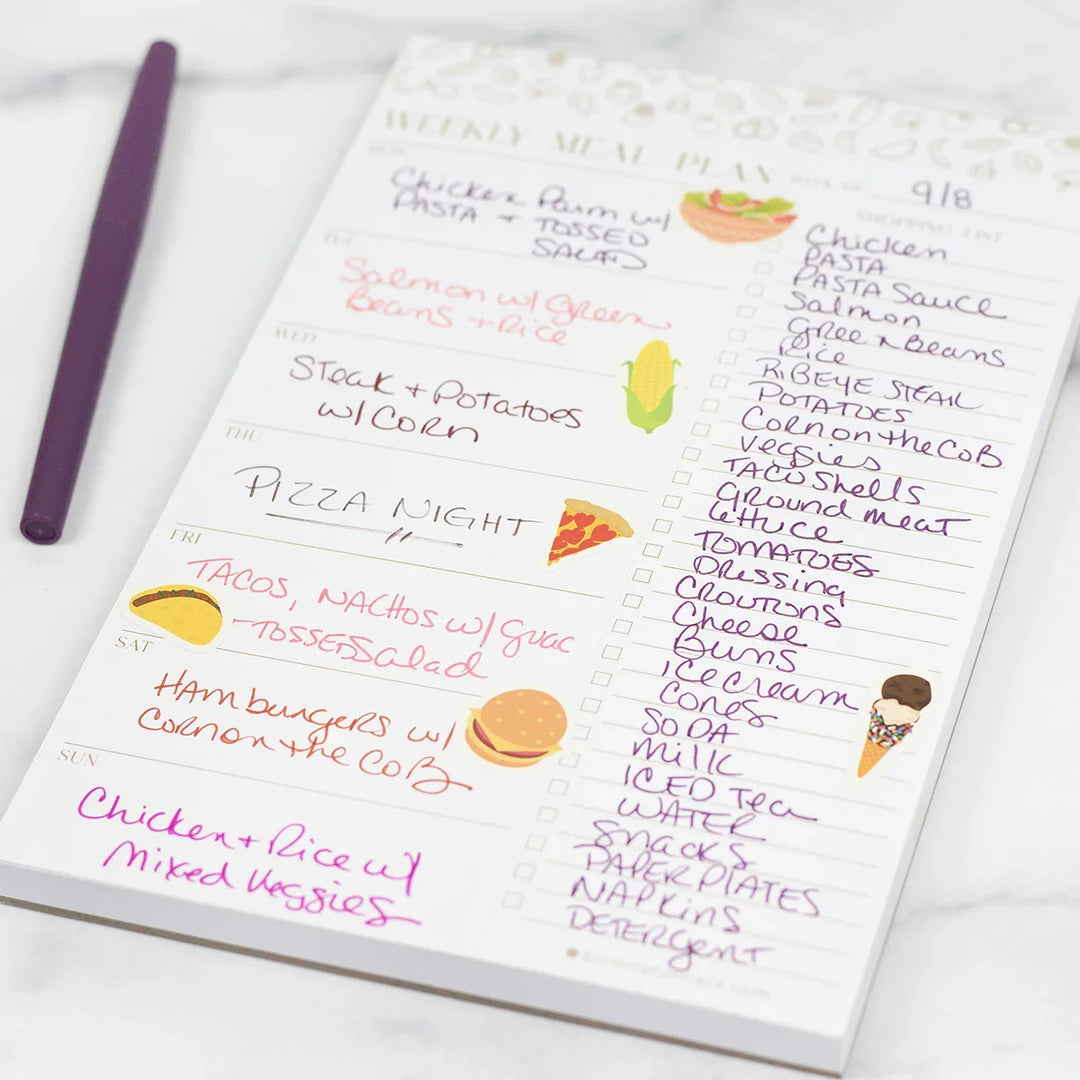 WEEKLY MEAL PLAN
WEEK OF 9/8
MON
Chicken Parm w/
PASTA + TOSSED
SALAD
TUE
Salmon w/ Green
Beans + Rice
WED
STeak + Potatoes
w/ CORn
THU
PIZZA NIGHT
FRI
TACOS, NACHOS w/ guac
-TOSSED Salad
SAT
HAmbungeRs w/
CoRn on the CoB
SUN
Chicken + Rice w/
Mixed Veggies
SHOPPING LIST
Chicken
PASTA
PASTA Sauce
Salmon
Green Beans
Rice
RIBEYE STEAK
POTATOES
Corn on the CoB
Veggies
TACO Shells
Ground meat
lettuce
TOMATOES
Dressing
CROUTONS
Cheese
Buns
ice cream
Cones
SODA
milk
ICED Tea
WATER
Snacks
PAPER PLATES
NAPKins
DETERgenT